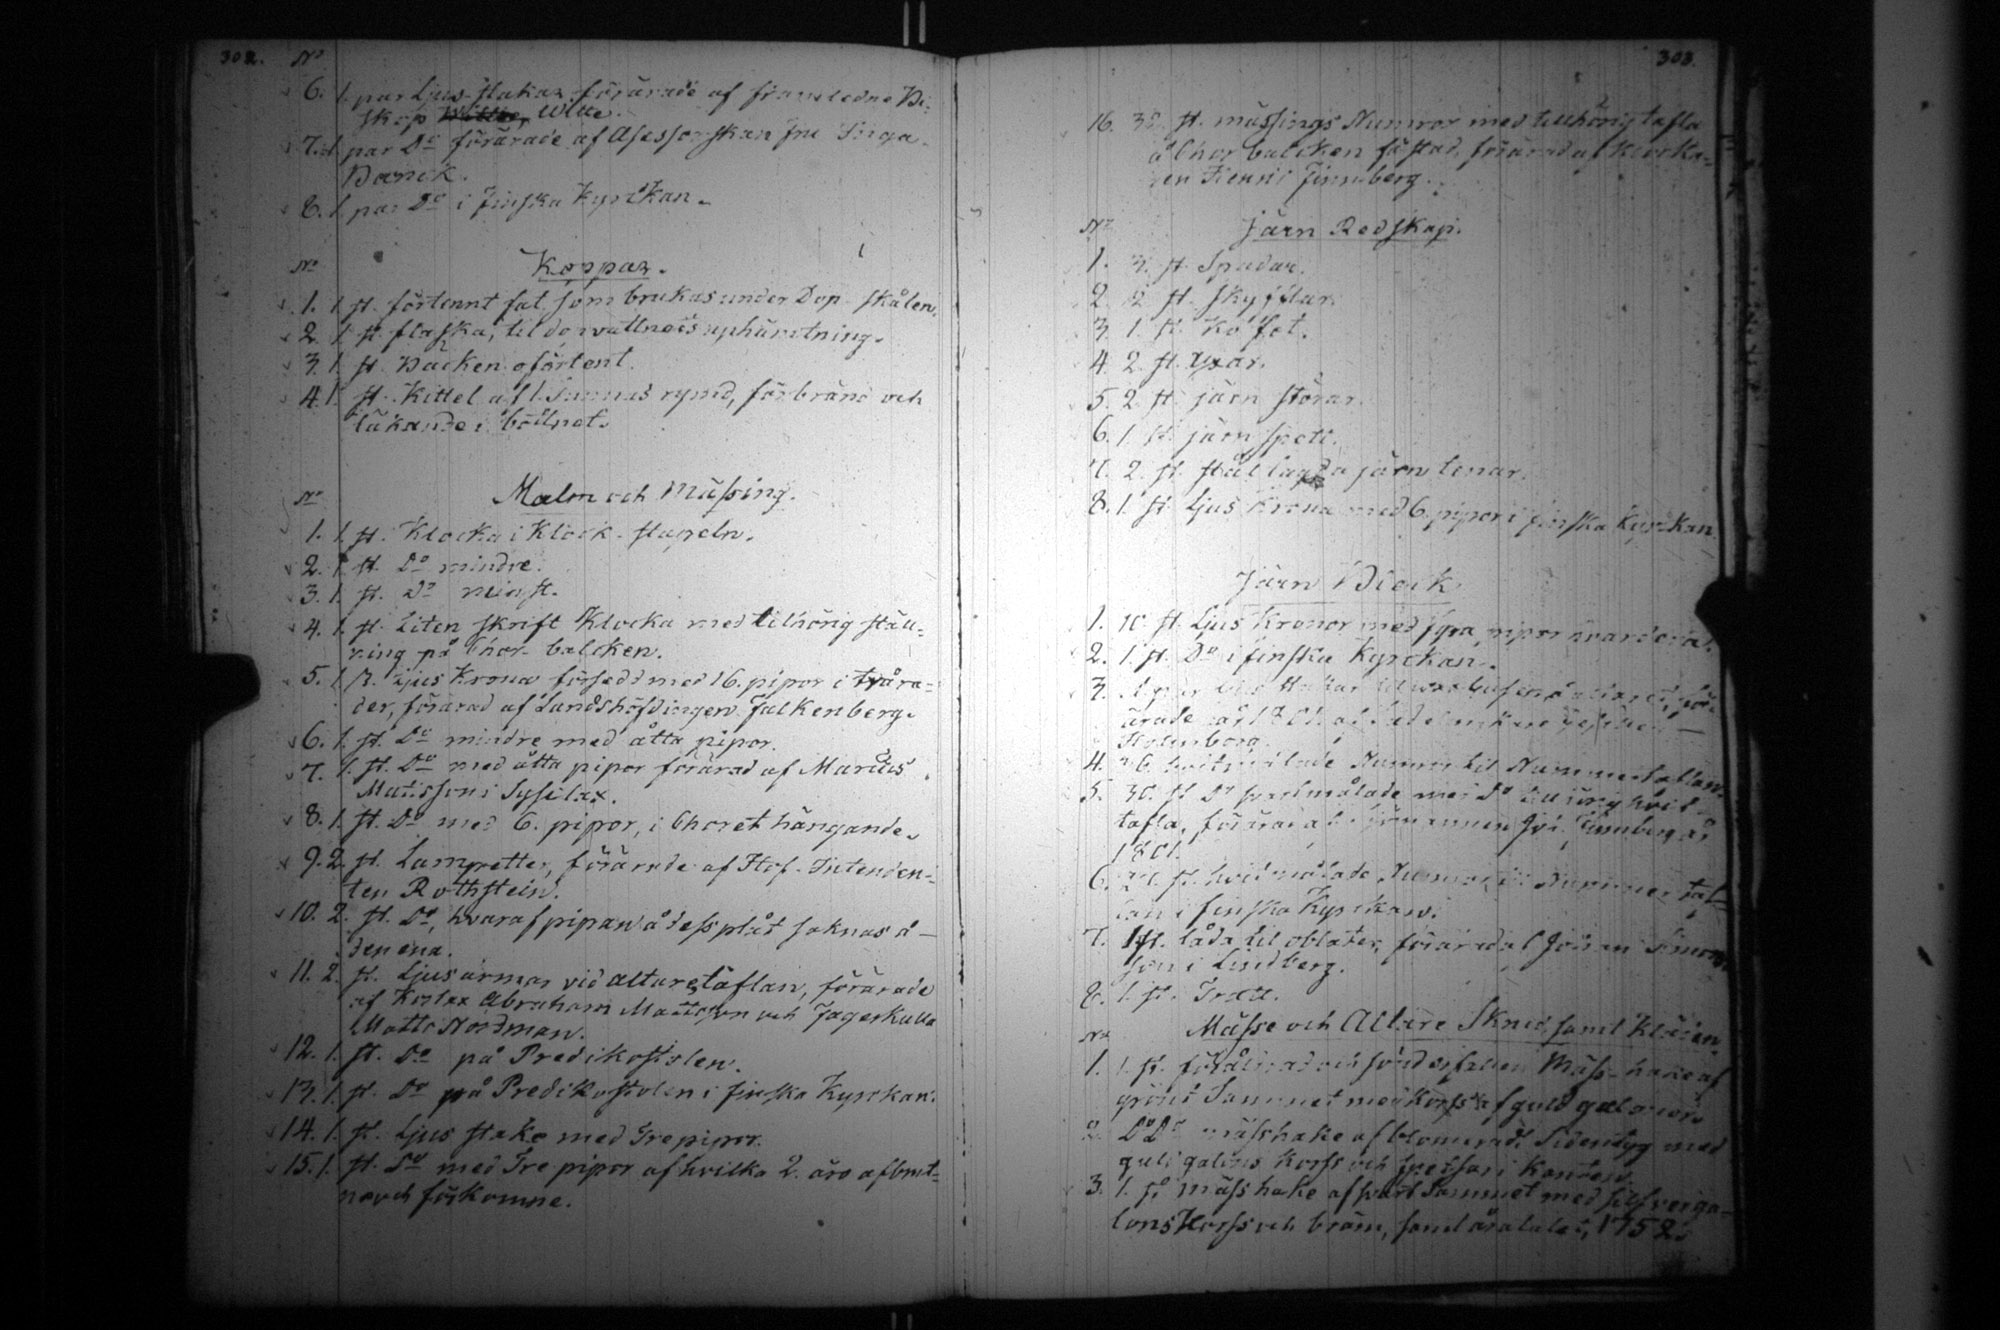 302.
No
6. 1. par Ljus-stakar förärade af framledne Bi-
skop Witte.
7. 1. par Do förärade af Asessorskan Fru Singa
Banck.
8. 1. par Do i finska Kyrckan.
No Koppar.
1. 1. st. förtennt fat som brukas under Dop-skålen.
2. 1. st. flaska, til dopvattnets uphämtning.
3. 1. st. Bäcken oförtent.
4. 1. st. Kittel af 1. rymd, förbränd och
läkande i båtnet.
No Malm och Mässing.
1. 1. st. Klocka i Klock-stapeln.
2. 1. st. Do mindre.
3. 1. st. Do minst.
4. 1. st. Liten skrift Klocka med tilhörig ställ-
ning på Chor-balcken.
5. 1. st. Ljus Krona försedd med 16. pipor i tvära-
der, förärad af Landshöfdingen Falkenberg.
6. 1. st. Do mindre med åtta pipor.
7. 1. st. Do med åtta pipor förärad af Marcus
Matsson i Sysilax.
8. 1. st. Do med 6. pipor, i Choret hängande.
9. 2. st. Lampetter, förärade af Hof-Intenden-
ten Rothstein.
10. 2. st. Do, hvaraf pipan å dess plåt saknas å
den ena.
11. 2. st. Ljus armar vid altaretaflan, förärade
af Abraham Mattsson och Jagerkulla
Matts Nordman.
12. 1. st. Do på Predikostolen.
13. 1. st. Do på Predikostolen i finska Kyrckan.
14. 1. st. Ljus stake med Tre pipor.
15. 1. st. Do med Tre pipor af hvilka 2. äro afbrut-
na och förkomne.
303.
16. st. mässings Numror med tillhörig tafla
å Chor balcken fästad, förärad af Klocka-
ren Henric Finnberg.
No Järn Redskap.
1. 3. st. Spadar.
2. 2. st. Skyfflar.
3. 1. st. Kofot.
4. 2. st. Yxar.
5. 2. st. järn störar.
6. 1. st. järn spett.
7. 2. st. stållagda järn tenar.
8. 1. st. Ljus Krona med 6. pipor i finska Kyrckan.
Järn Bleck
1. 10. st. Ljus Kronor med fyra pipor hvardera.
2. 1. st. Do i finska Kyrckan.
3. 1 par Ljus stakar til för-
ärade år 1801. af
Holmborg.
4. 36. hvitmålade Numror til Nummertaflan.
5. 30. st. Do svartmålade med Do tillhörig hvit
tafla, förärad af Finnberg år
1801.
6. st. hvidmålade Numror til Nummer taf-
lan i finska Kyrckan.
7. 1 st. låda til oblater, förärad af Johan Simons
son i Lindberg.
8. 1. st. Tratt.
No Mässe och Altare Skrud, samt Kläden.
1. 1. st. föråldrad och söndersliten Mäss-hake af
grönt Sammet med Korss af guld galoner.
2. Do Do mässhake af blomeradt Sidentyg med
guld galons Korss och i Kanten.
3. 1. st. mässhake af svart Sammet med silfverga-
lons Korss och bräm, samt åratalet, 1752.